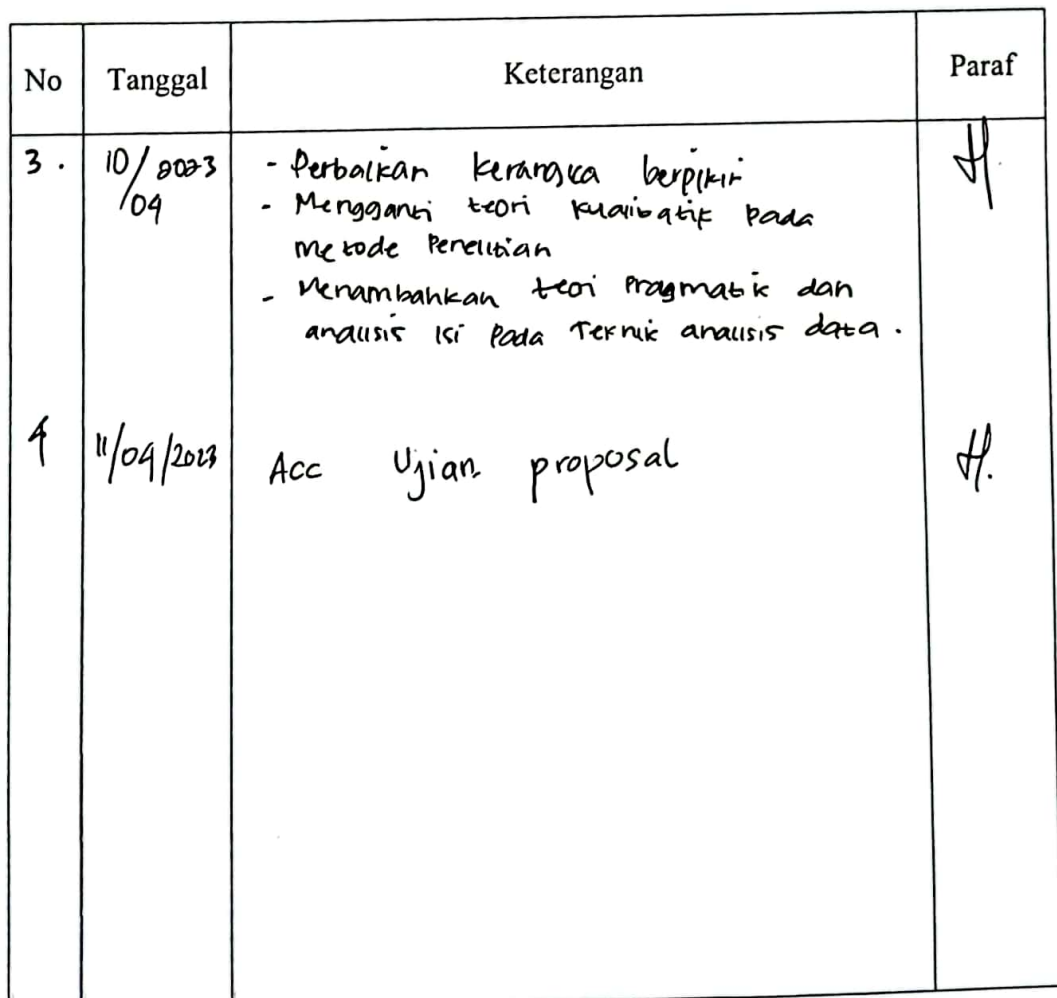 No Tanggal Keterangan Paraf
3. 10/04 2023 - Perbaikan kerangka berpikir
- Mengganti teori kualitatif pada
metode Penelitian
- Menambahkan teori Pragmatik dan
analisis isi Pada Teknik analisis data.
4 11/04/2023 Acc Ujian proposal